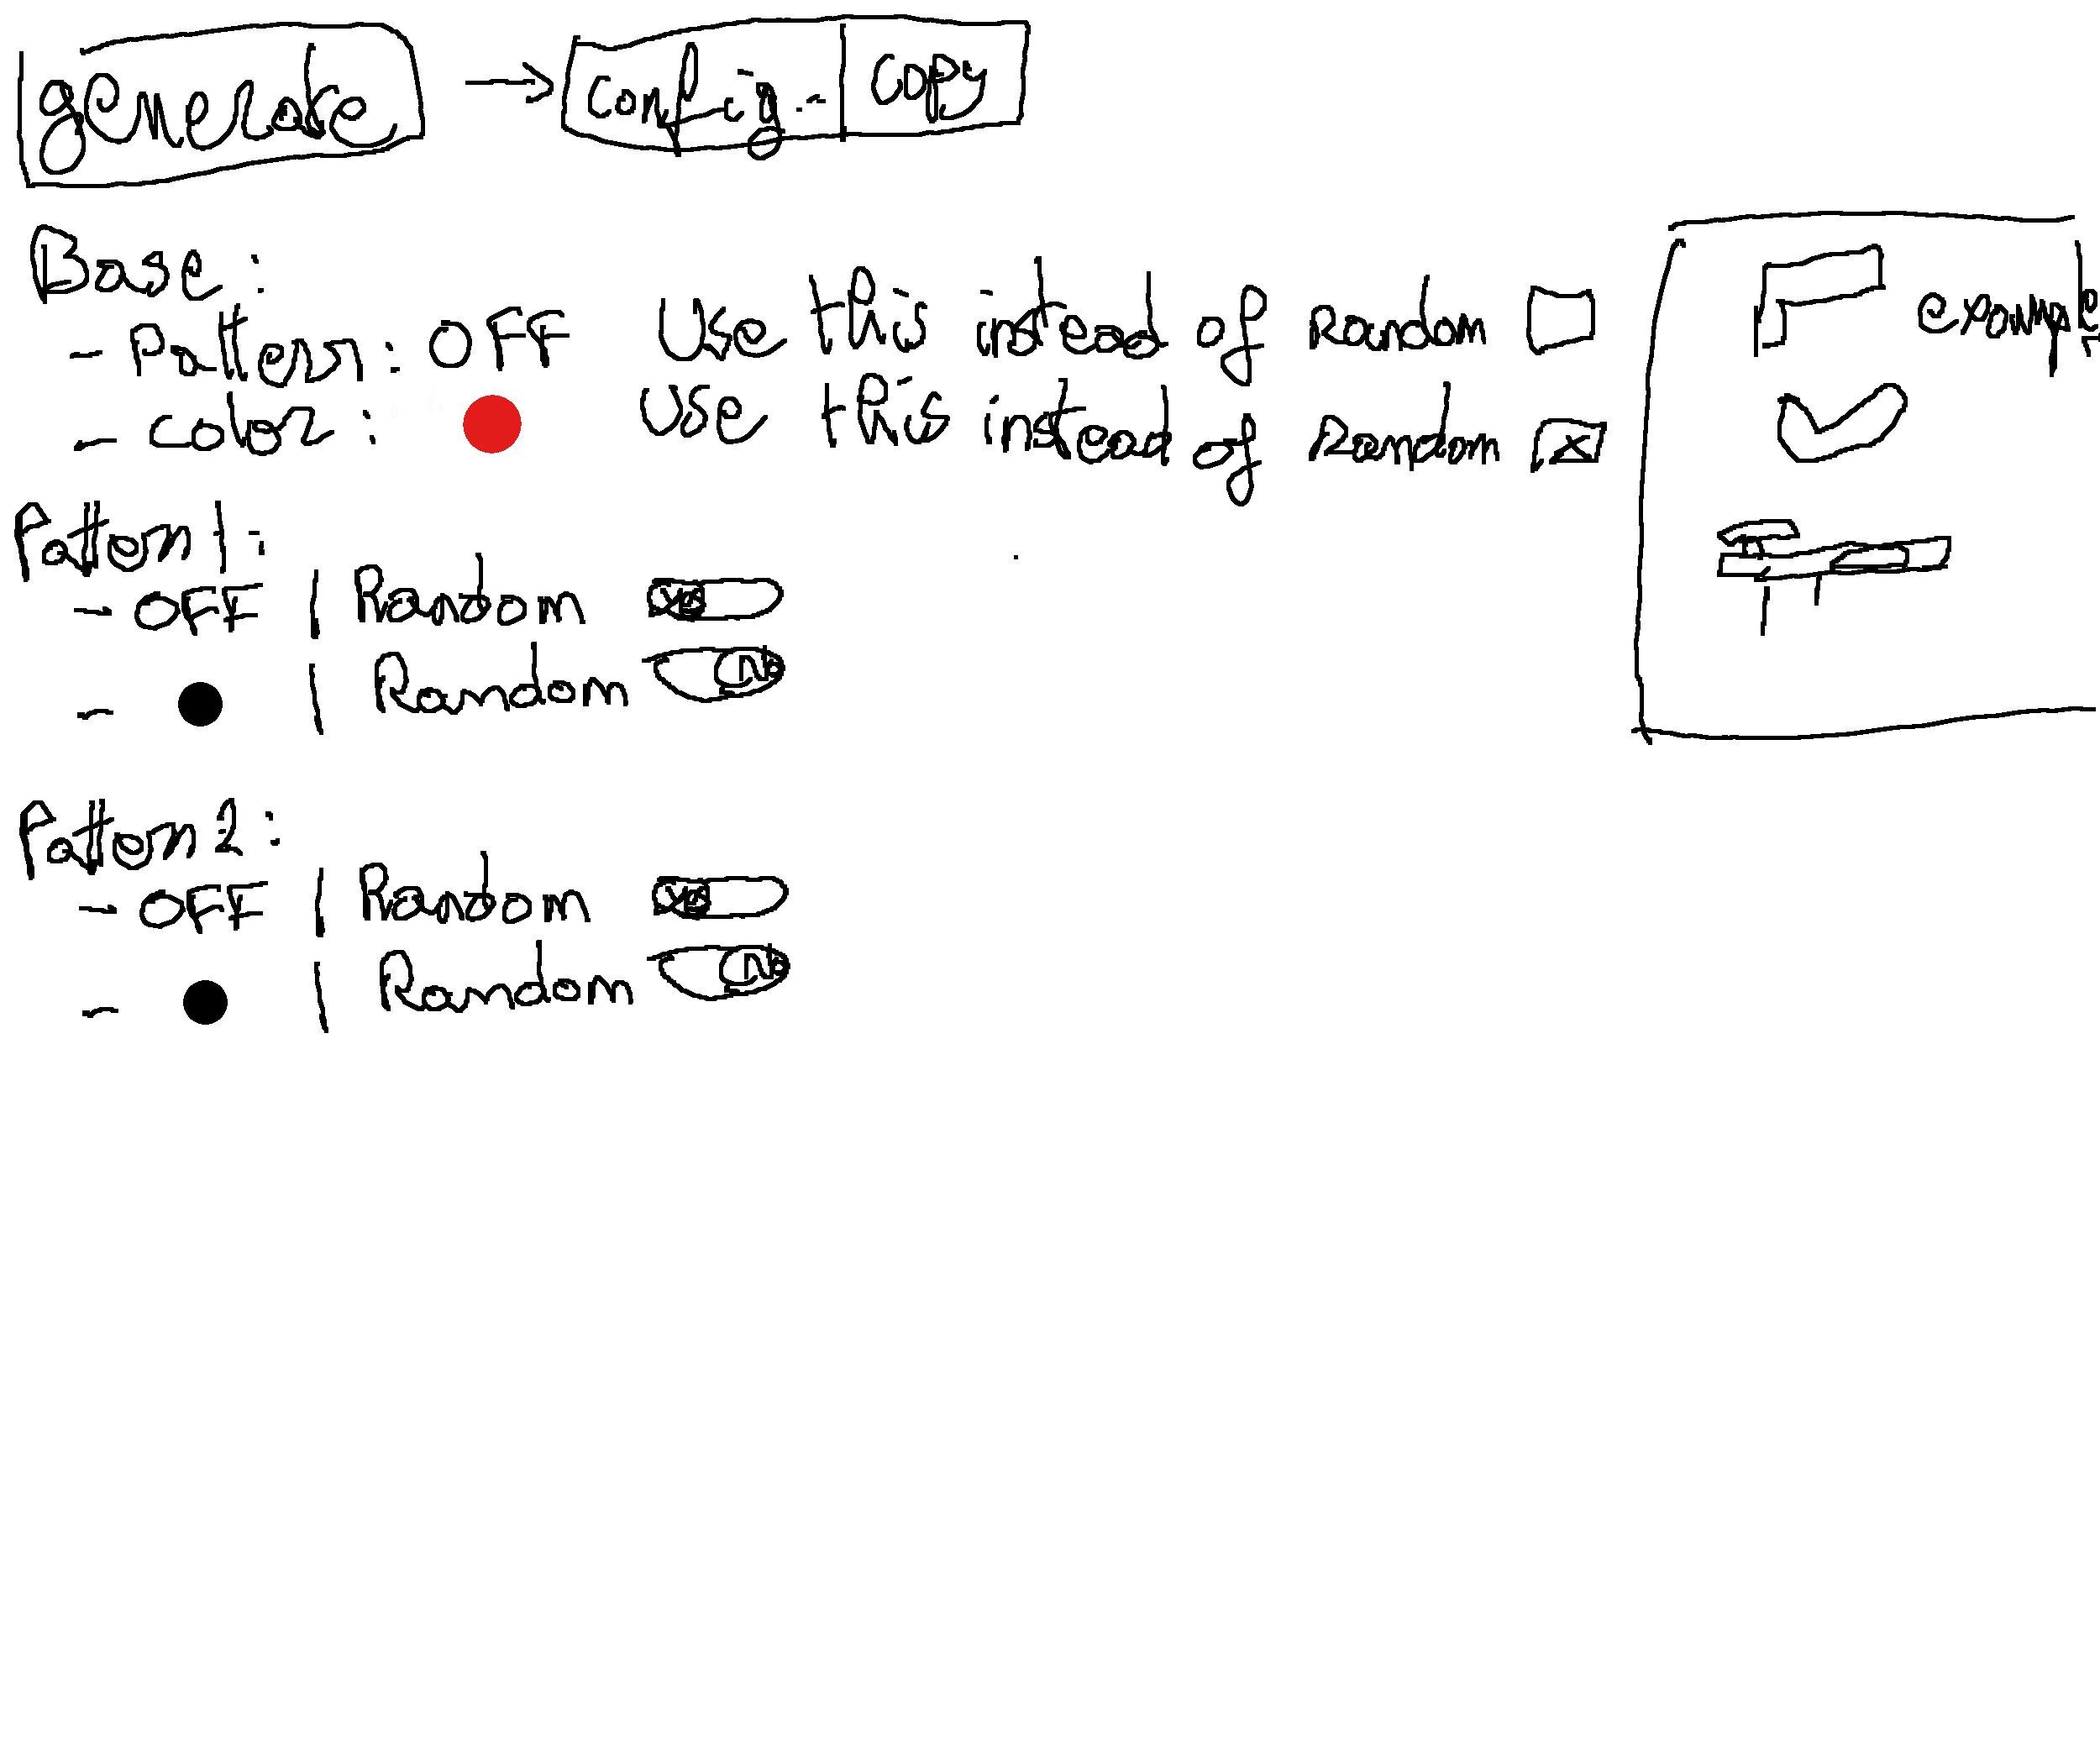 generate → config.. copy
Base:
- Pattern: OFF Use this instead of Random
- color: Use this instead of Random x
example
Pattern 1:
- OFF | Random Yes
- | Random No
Pattern 2:
- OFF | Random Yes
- | Random No